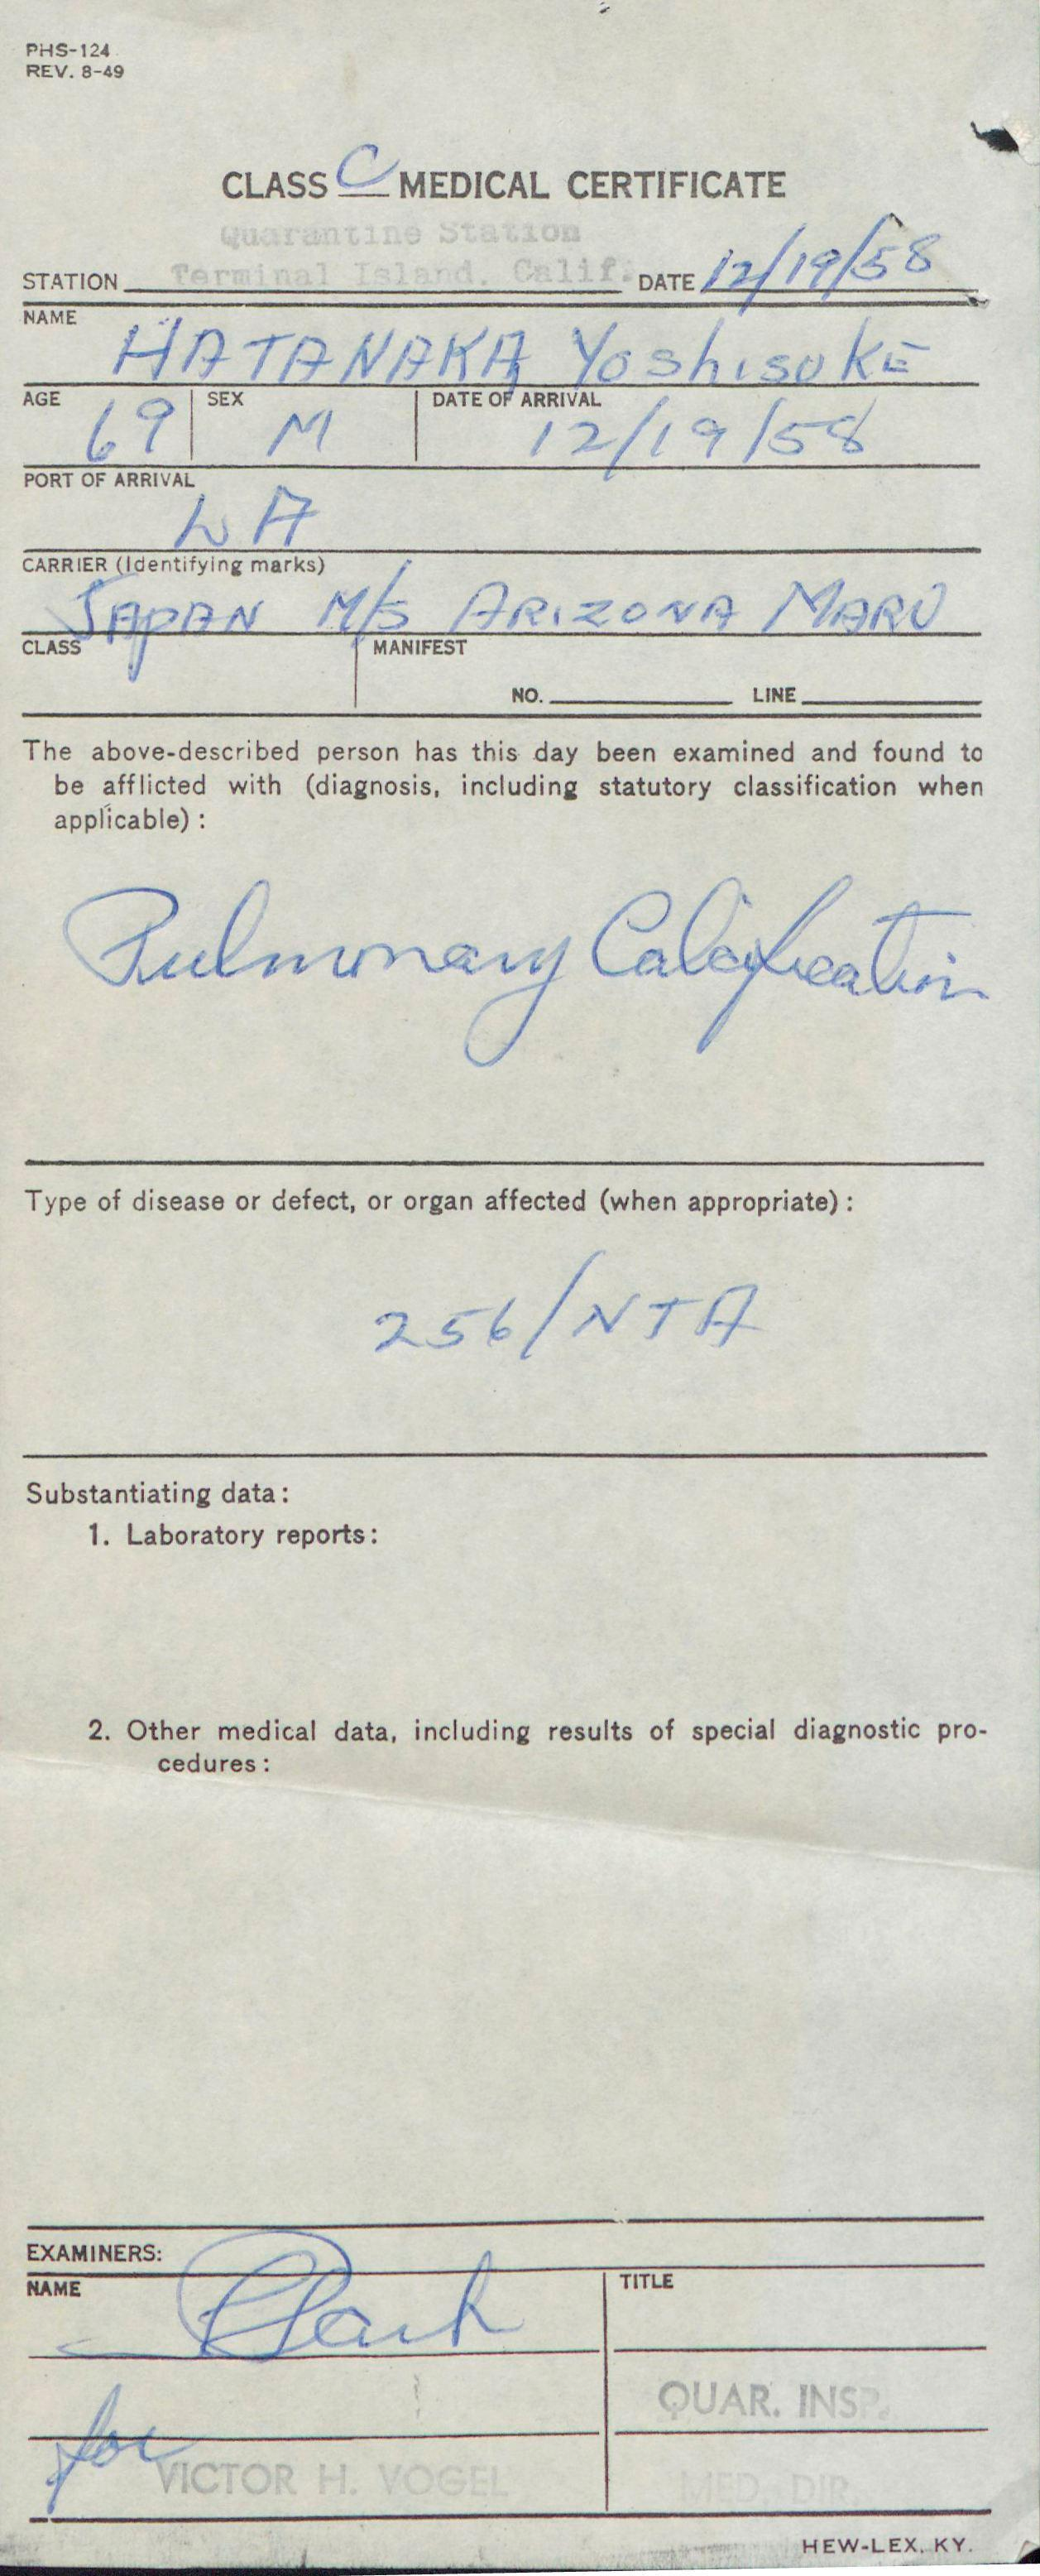 PHS-124
REV. 8-49
CLASS C MEDICAL CERTIFICATE
Quarantine Station
STATION Terminal Island, Calif. DATE 12/19/58
NAME
HATANAKA Yoshisuke
AGE 69 SEX M DATE OF ARRIVAL 12/19/58
PORT OF ARRIVAL
LA
CARRIER (Identifying marks)
JAPAN M/S ARIZONA MARU
CLASS MANIFEST
NO. LINE
The above-described person has this day been examined and found to
be afflicted with (diagnosis, including statutory classification when
applicable):
Pulmonary Calcification
Type of disease or defect, or organ affected (when appropriate):
256/NTA
Substantiating data:
1. Laboratory reports:
2. Other medical data, including results of special diagnostic pro-
cedures:
EXAMINERS:
NAME TITLE
QUAR. INSP.
for VICTOR H. VOGEL MED. DIR.
HEW-LEX. KY.